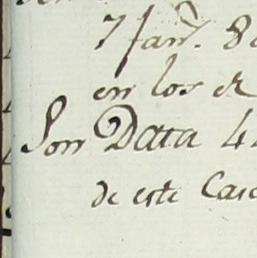 7 Jan.^r. 8
en los
Son Data 4
de este Cas